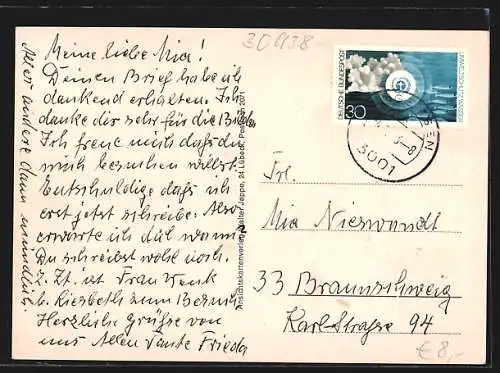 30438
Meine liebe Mia!
Deinen Brief habe ich
dankend erhalten. Ich
danke dir sehr für die Bilder
Ich freue mich daß du
mich besuchen willst.
Entschuldige daß ich
erst jetzt schreibe. Also
erwarte ich dich wann
Du schreibst wohl noch.
z. Zt. ist Frau
b. Liesbeth zum Besuch
Herzliche Grüße von
uns Allen Tante Frieda
Alles andere dann mündlich.
Ansichtskartenverlag Walter Jappen, 24 Lübeck,
DEUTSCHE BUNDESPOST
30
3001
SEN
Frl.
Mia Nieswandt
33 Braunschweig
Karl-Straße 94
€ 8,-